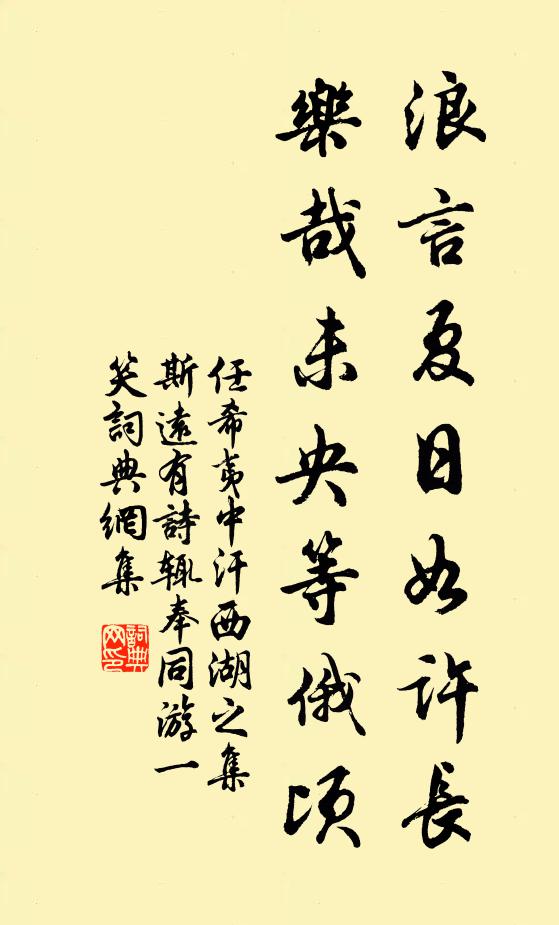 浪言夏日如許長
樂哉未央等俄頃
任希夷中汗西湖之集
斯遠有詩輒奉同游一
笑詞典網集
詞典網印